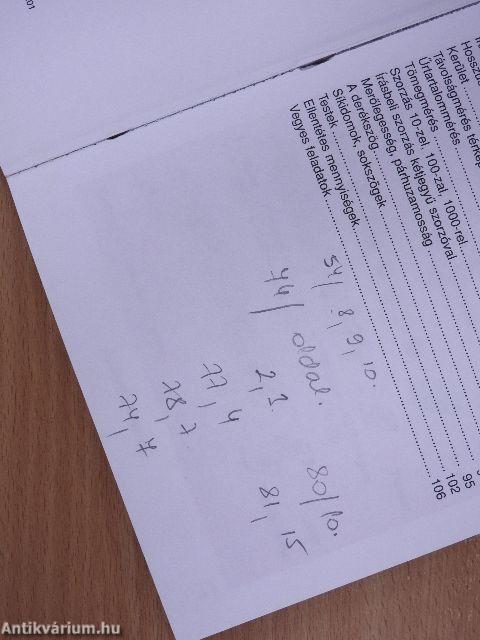 Kerület
Távolságmérés térkép
Űrtartalommérés
Tömegmérés
Szorzás 10-zel, 100-zal, 1000-rel
Írásbeli szorzás kétjegyű szorzóval
Merőlegesség, párhuzamosság
A derékszög
Síkidomok, sokszögek
Testek 95
Ellentétes mennyiségek 102
Vegyes feladatok 106
54/ 8, 9, 10.
44/ oldal.
80/10.
2, 3
81, 15
77, 4
78, 7
74, 7
Antikvárium.hu